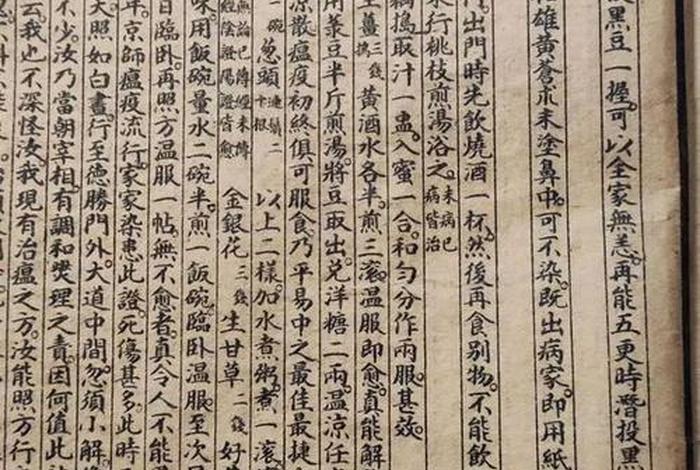 黑豆一握。可以全家無恙。再能五更時潛投黑
雄黃蒼朮末塗鼻中。可不染。既出病家。即用紙
出門時先飲燒酒一杯。然後再食别物。不能飲
行桃枝煎湯浴之。未病已病皆治
藕搗取汁一盅。入蜜一合。和勻分作兩服。甚效。
薑三錢搗黃酒水各半。煎三滾。温服即愈。真能解
用菉豆半斤煎湯。將豆取出。兑洋糖二兩。温凉任
凉散瘟疫初終俱可服食。乃平易中之最佳最捷
一碗葱頭連鬚二十根以上二樣。加水煮粥。煮一滾
無論已傳經未傳經陰證陽證皆愈金銀花三錢生甘草二錢好
味。用飯碗量水二碗半。煎一飯碗。臨卧温服。至次
日臨卧。再照方温服一帖。無不愈者。真令人不能
年。京師瘟疫流行。家家染患此證。死傷甚多。此時
大照如白晝。行至德勝門外大道中間。忽須小解。
不少。汝乃當朝宰相。有調和爕理之責。因何值此
云。我也不深怪汝。我現有治瘟之方。汝能照方行